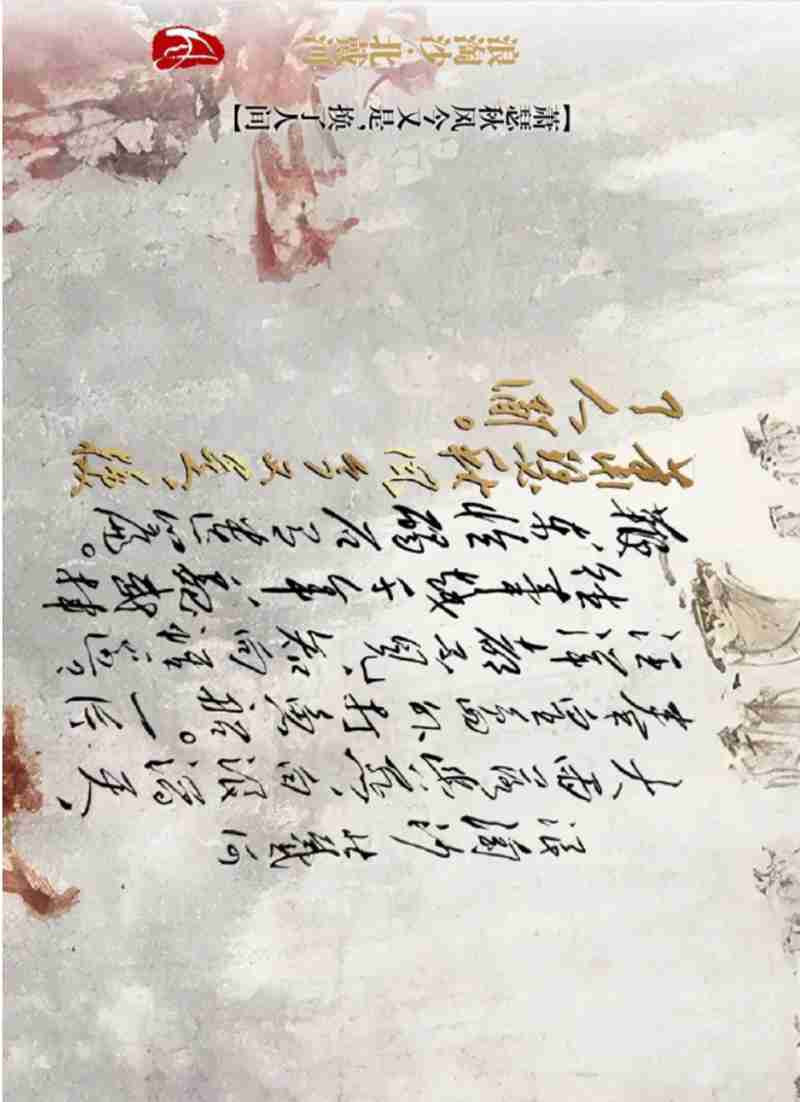 浪淘沙·北戴河
【萧瑟秋风今又是,换了人间】
浪淘沙 北戴河
大雨落幽燕,白浪滔天、
秦皇岛外打鱼船。一片
汪洋都不见、知向谁边?
往事越千年、魏武挥
鞭,东临碣石有遗篇。
萧瑟秋风今又是、换
了人间。